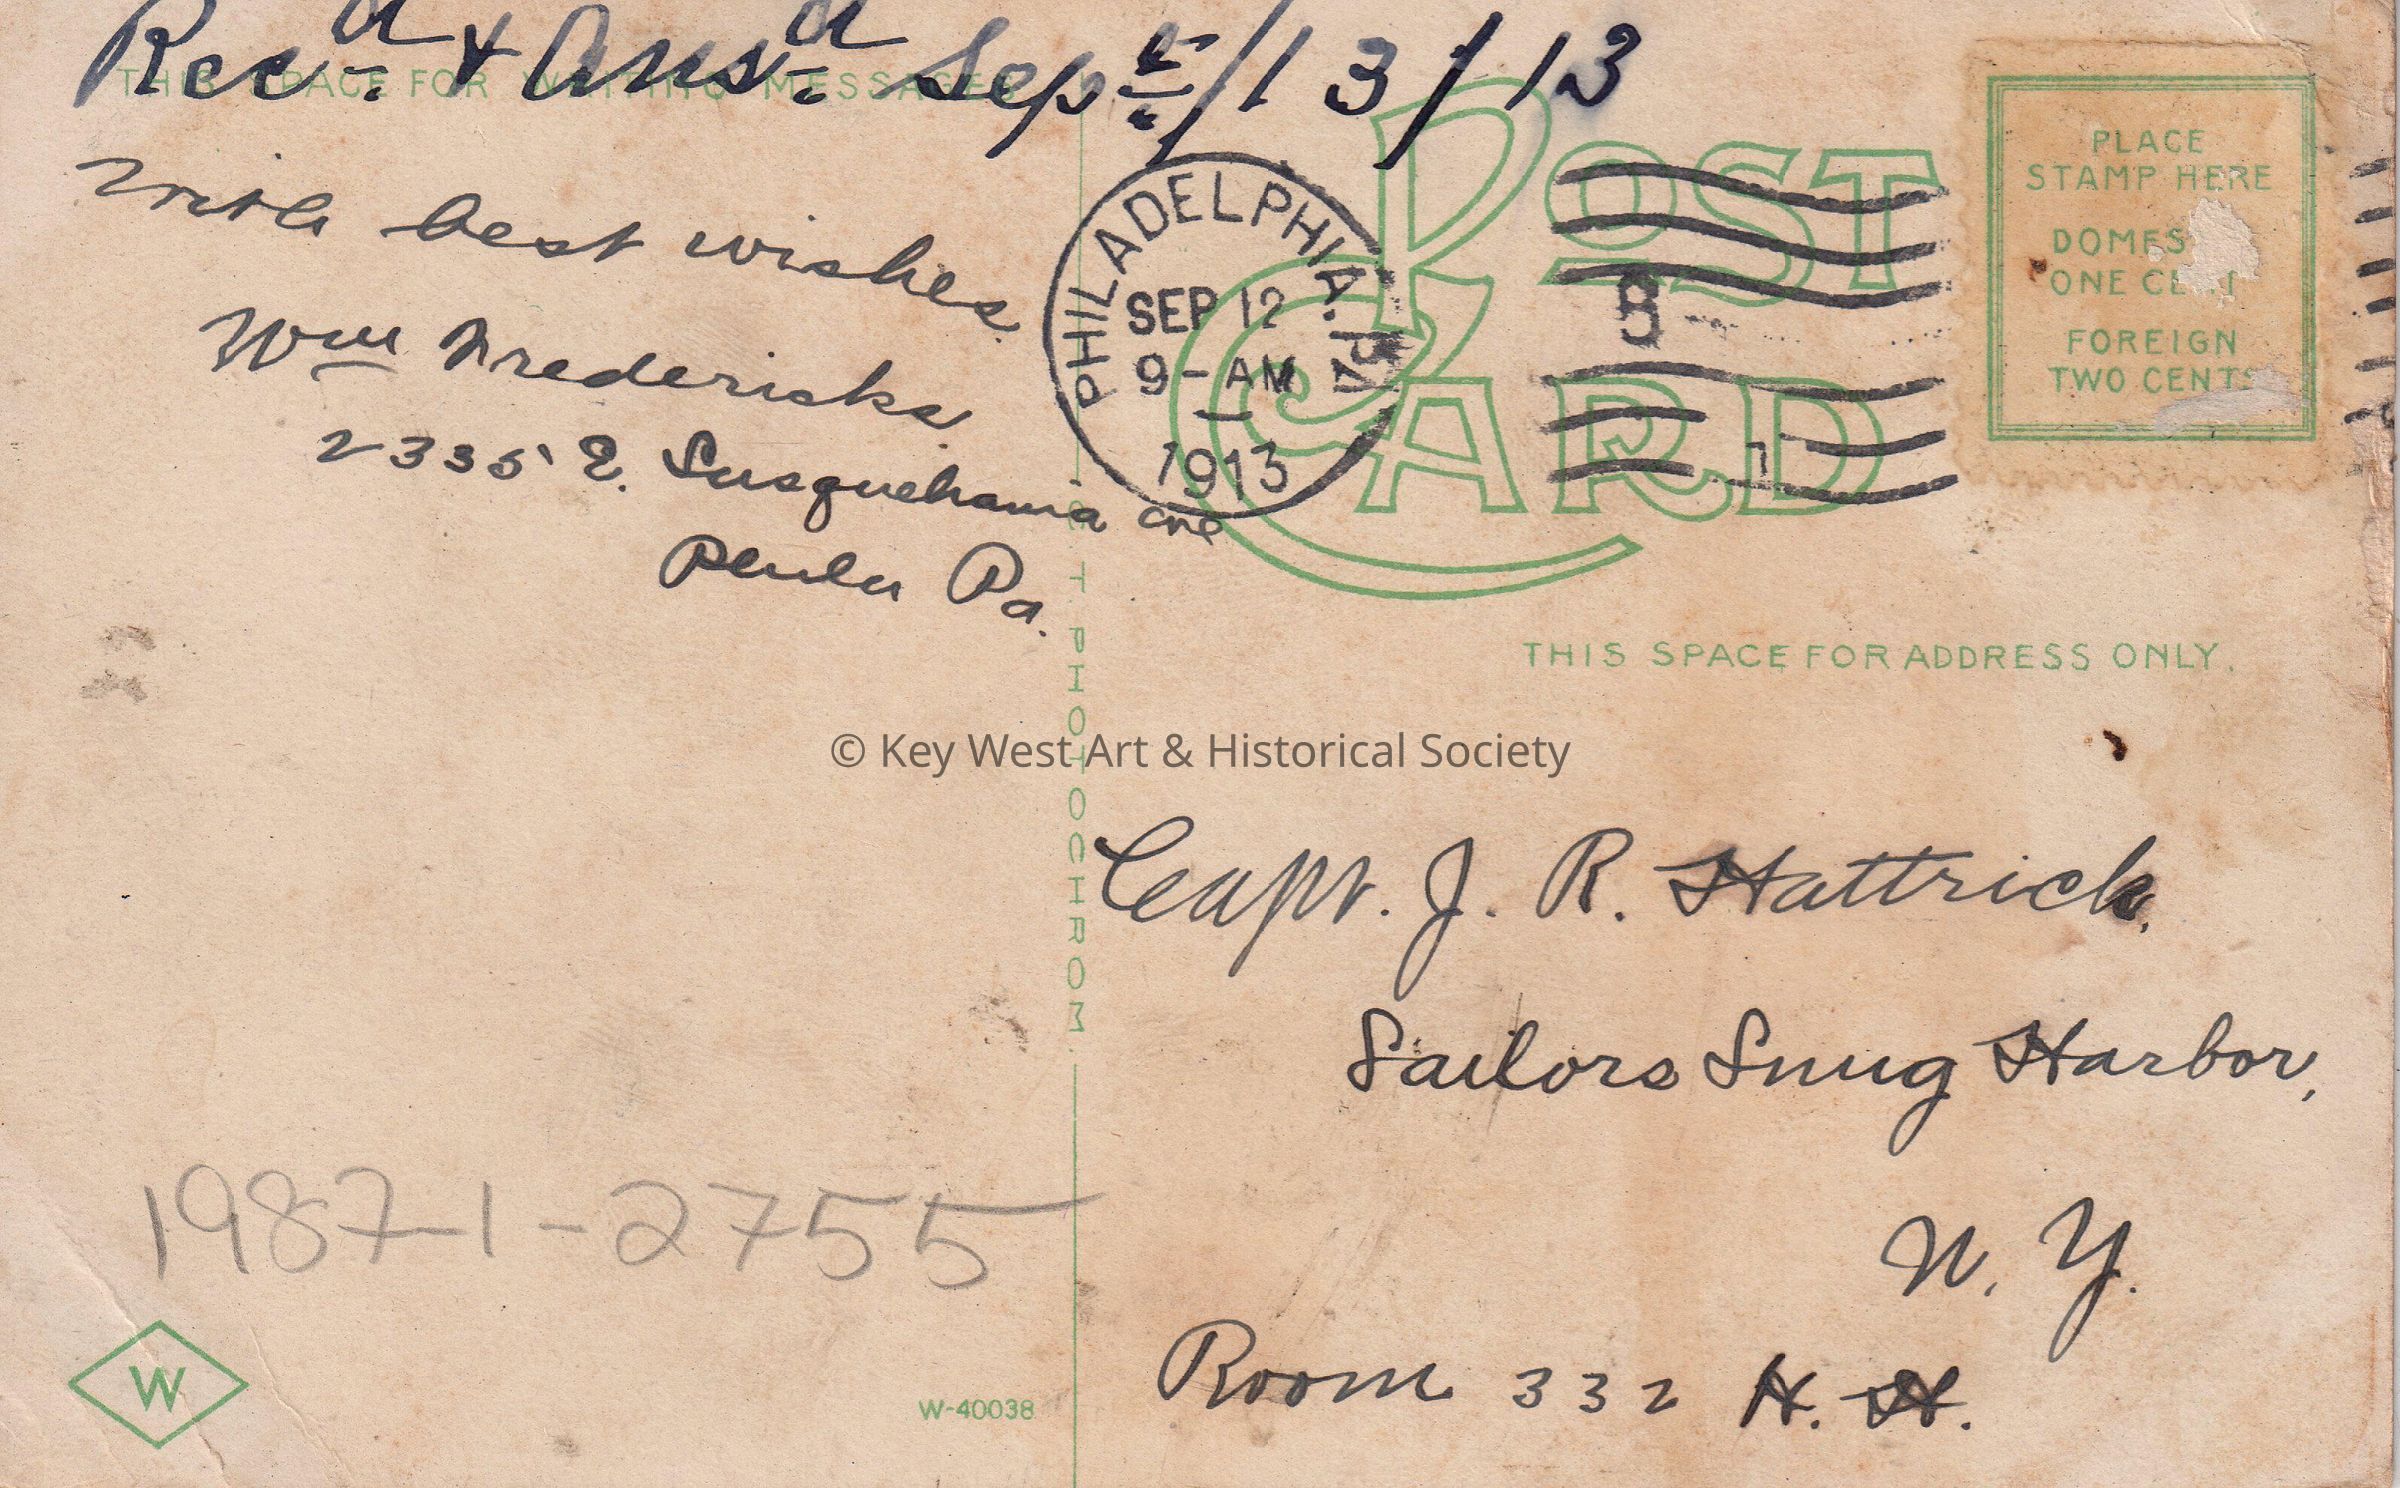 Recd. & Ansd. Sept./13/13
THIS SPACE FOR WRITING MESSAGES
With best wishes.
Wm Fredericks.
2335 E. Susquehanna ave
Phila Pa.
PHILADELPHIA, PA.
SEP 12
9-AM
1913
POST CARD
PLACE
STAMP HERE
DOMES
ONE CENT
FOREIGN
TWO CENTS
THIS SPACE FOR ADDRESS ONLY.
© Key West Art & Historical Society
C. T. PHOTOCHROM.
Capt. J. R. Hattrick.
Sailors Snug Harbor,
N. Y.
Room 332 H. H.
1987-1-2755
W
W-40038